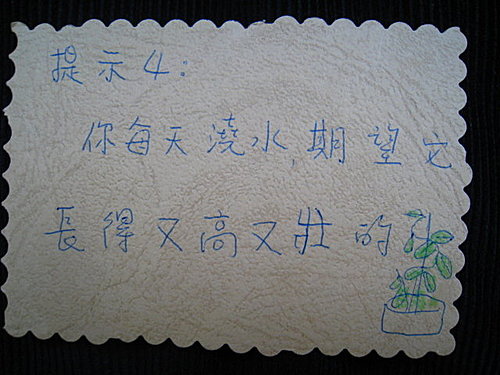 提示4:
你每天澆水,期望它
長得又高又壯的